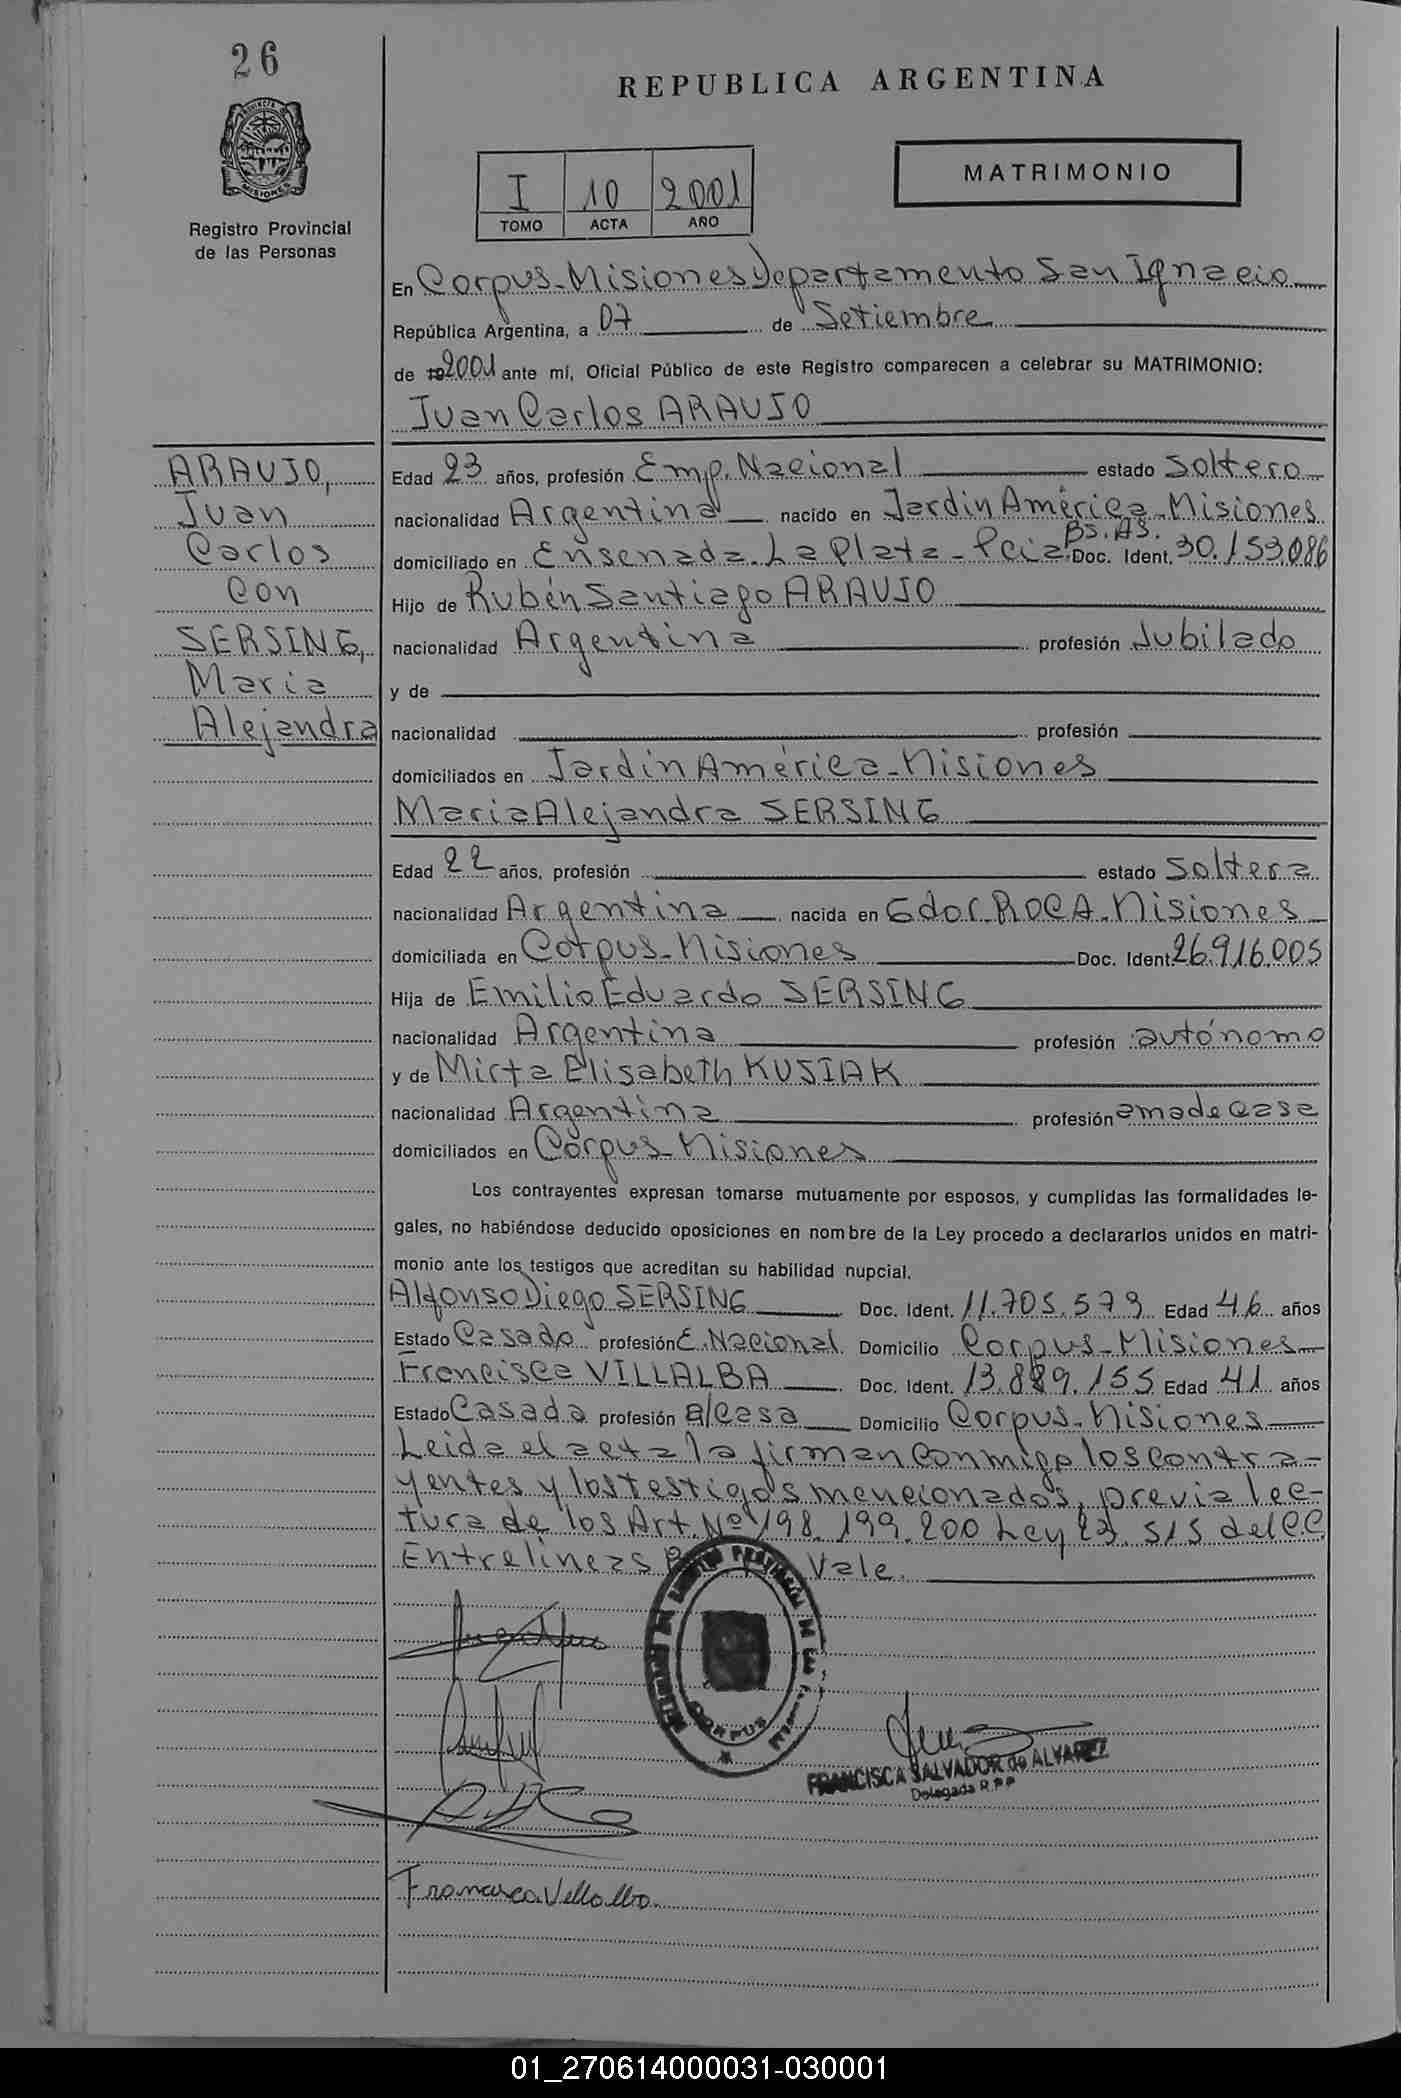 26
REPUBLICA ARGENTINA
MISIONES
Registro Provincial
de las Personas
I 10 2001
TOMO ACTA AÑO
MATRIMONIO
En Corpus-Misiones Departamento San Ignacio
República Argentina, a 07 de Setiembre
de 2001 ante mí, Oficial Público de este Registro comparecen a celebrar su MATRIMONIO:
Juan Carlos ARAUJO
ARAUJO,
Juan
Carlos
con
SERSING,
Maria
Alejandra
Edad 23 años, profesión Emp. Nacional estado Soltero
nacionalidad Argentina nacido en Jardin América-Misiones
Bs. As.
domiciliado en Ensenada-La Plata-Pcia Doc. Ident. 30.153.086
Hijo de Rubén Santiago ARAUJO
nacionalidad Argentina profesión Jubilado
y de
nacionalidad profesión
domiciliados en Jardin América-Misiones
Maria Alejandra SERSING
Edad 22 años, profesión estado Soltera
nacionalidad Argentina nacida en Gdor. ROCA-Misiones
domiciliada en Corpus-Misiones Doc. Ident. 26.916.005
Hija de Emilio Eduardo SERSING
nacionalidad Argentina profesión autónomo
y de Mirta Elisabeth KUSIAK
nacionalidad Argentina profesión ama de casa
domiciliados en Corpus-Misiones
Los contrayentes expresan tomarse mutuamente por esposos, y cumplidas las formalidades le-
gales, no habiéndose deducido oposiciones en nombre de la Ley procedo a declararlos unidos en matri-
monio ante los testigos que acreditan su habilidad nupcial.
Alfonso Diego SERSING Doc. Ident. 11.705.579 Edad 46 años
Estado Casado profesión E. Nacional Domicilio Corpus-Misiones
Francisca VILLALBA Doc. Ident. 13.889.155 Edad 41 años
Estado Casada profesión a/casa Domicilio Corpus-Misiones
Leida el acta la firman conmigo los contra-
yentes y los testigos mencionados, previa lec-
tura de los Art. Nº 198. 199. 200 Ley 23.515 del C.C.
Entrelineas Vale.
CORPUS
FRANCISCA SALVADOR de ALVAREZ
Delegada R.P.P
Francisca Villalba
01_270614000031-030001